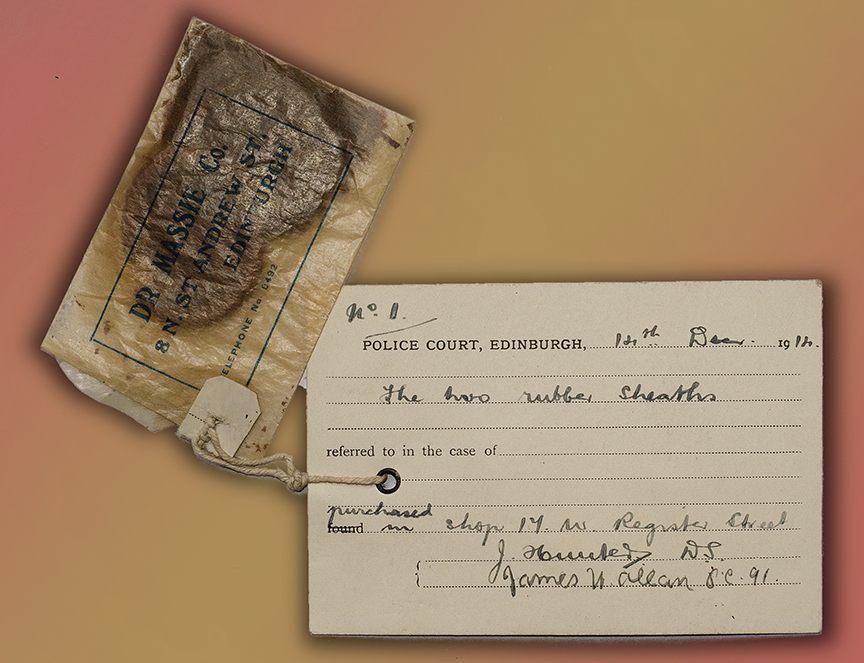 DR MASSIE Co.
8 N. ST ANDREW ST.
EDIN URGH
ELEPHONE No 6492
No 1.
POLICE COURT, EDINBURGH, 12th Decr. 1912.
The two rubber Sheaths
referred to in the case of
purchased
found in shop 17. W. Register Street
J. Hunter, D.S.
James W Allan P.C. 91.